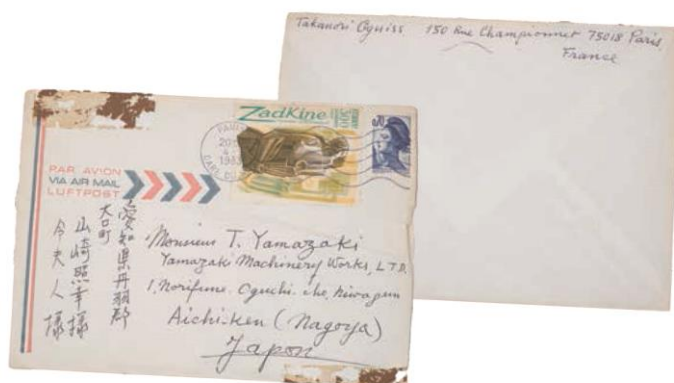 Takanori Oguiss 150 Rue Championnet 75018 Paris
France
Zadkine
PARIS
PAR AVION
VIA AIR MAIL
LUFTPOST
愛知県丹羽郡
大口町
山崎照幸様
令夫人様
Monsieur T. Yamazaki
Yamazaki Machinery Works, L.T.D.
1, Norifune. Oguchi-cho, Niwagun
Aichiken (Nagoya)
Japon